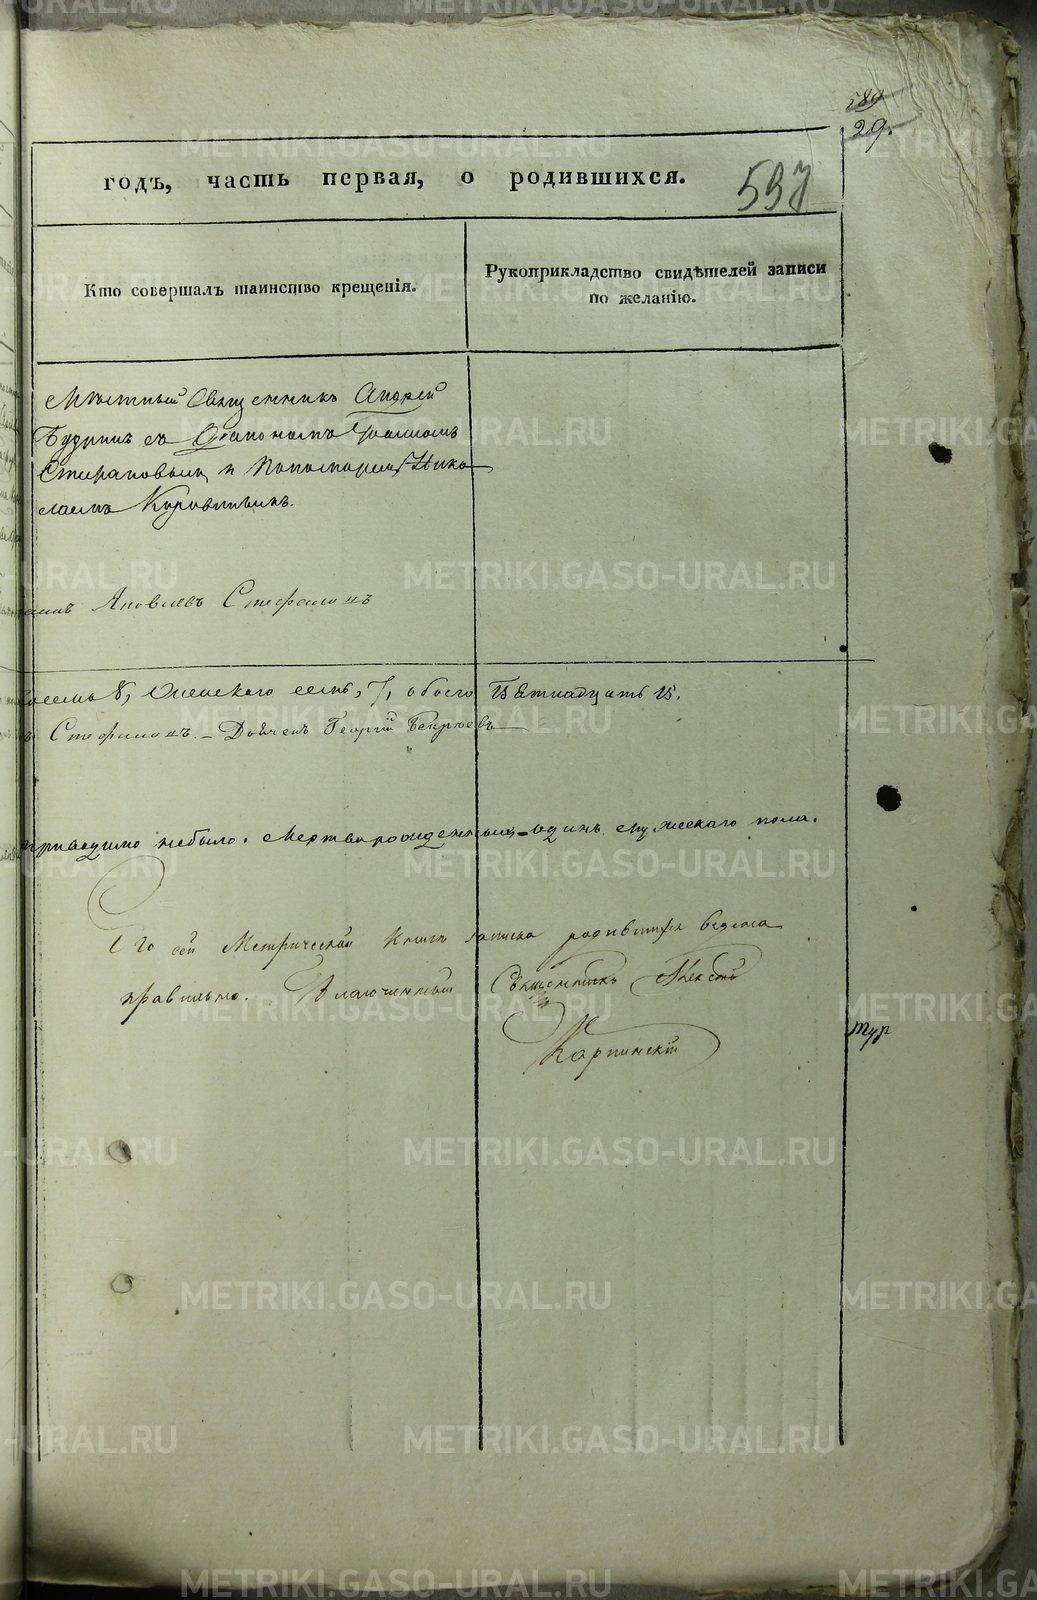 589
29.
годъ, часть первая, о родившихся.
597
Кто совершалъ таинство крещенія.
Рукоприкладство свидѣтелей записи
по желанію.
Мѣстный Священникъ Андрей
Будринъ съ Діакономъ
и Пономаремъ Нико
лаемъ
Яковлевъ Стефановъ
8, Женскаго семь, 7, обоего Пятнадцать 15.
Стефановъ. – Дьячекъ Георгій
небыло. Мертворожденныхъ – одинъ мужескаго пола.
По сей Метрической Книги записка родившихся ведена
правильно. Благочинный Священникъ Алексѣй
Карпинскій
тур
METRIKI.GASO-URAL.RU